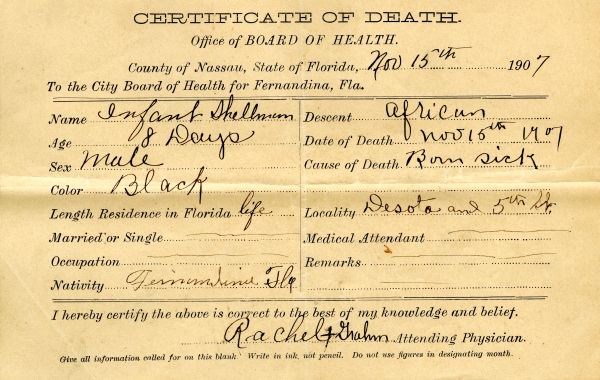 CERTIFICATE OF DEATH.
Office of BOARD OF HEALTH.
County of Nassau, State of Florida, Nov 15th 1907
To the City Board of Health for Fernandina, Fla.
Name Infant Shellman
Age 8 Days
Sex Male
Color Black
Length Residence in Florida life
Married or Single
Occupation
Nativity Fernandina Fla
Descent African
Date of Death Nov 15th 1907
Cause of Death Born sick
Locality Desota and 5th St.
Medical Attendant
Remarks
I hereby certify the above is correct to the best of my knowledge and belief.
Rachel Grahm Attending Physician.
Give all information called for on this blank. Write in ink, not pencil. Do not use figures in designating month.